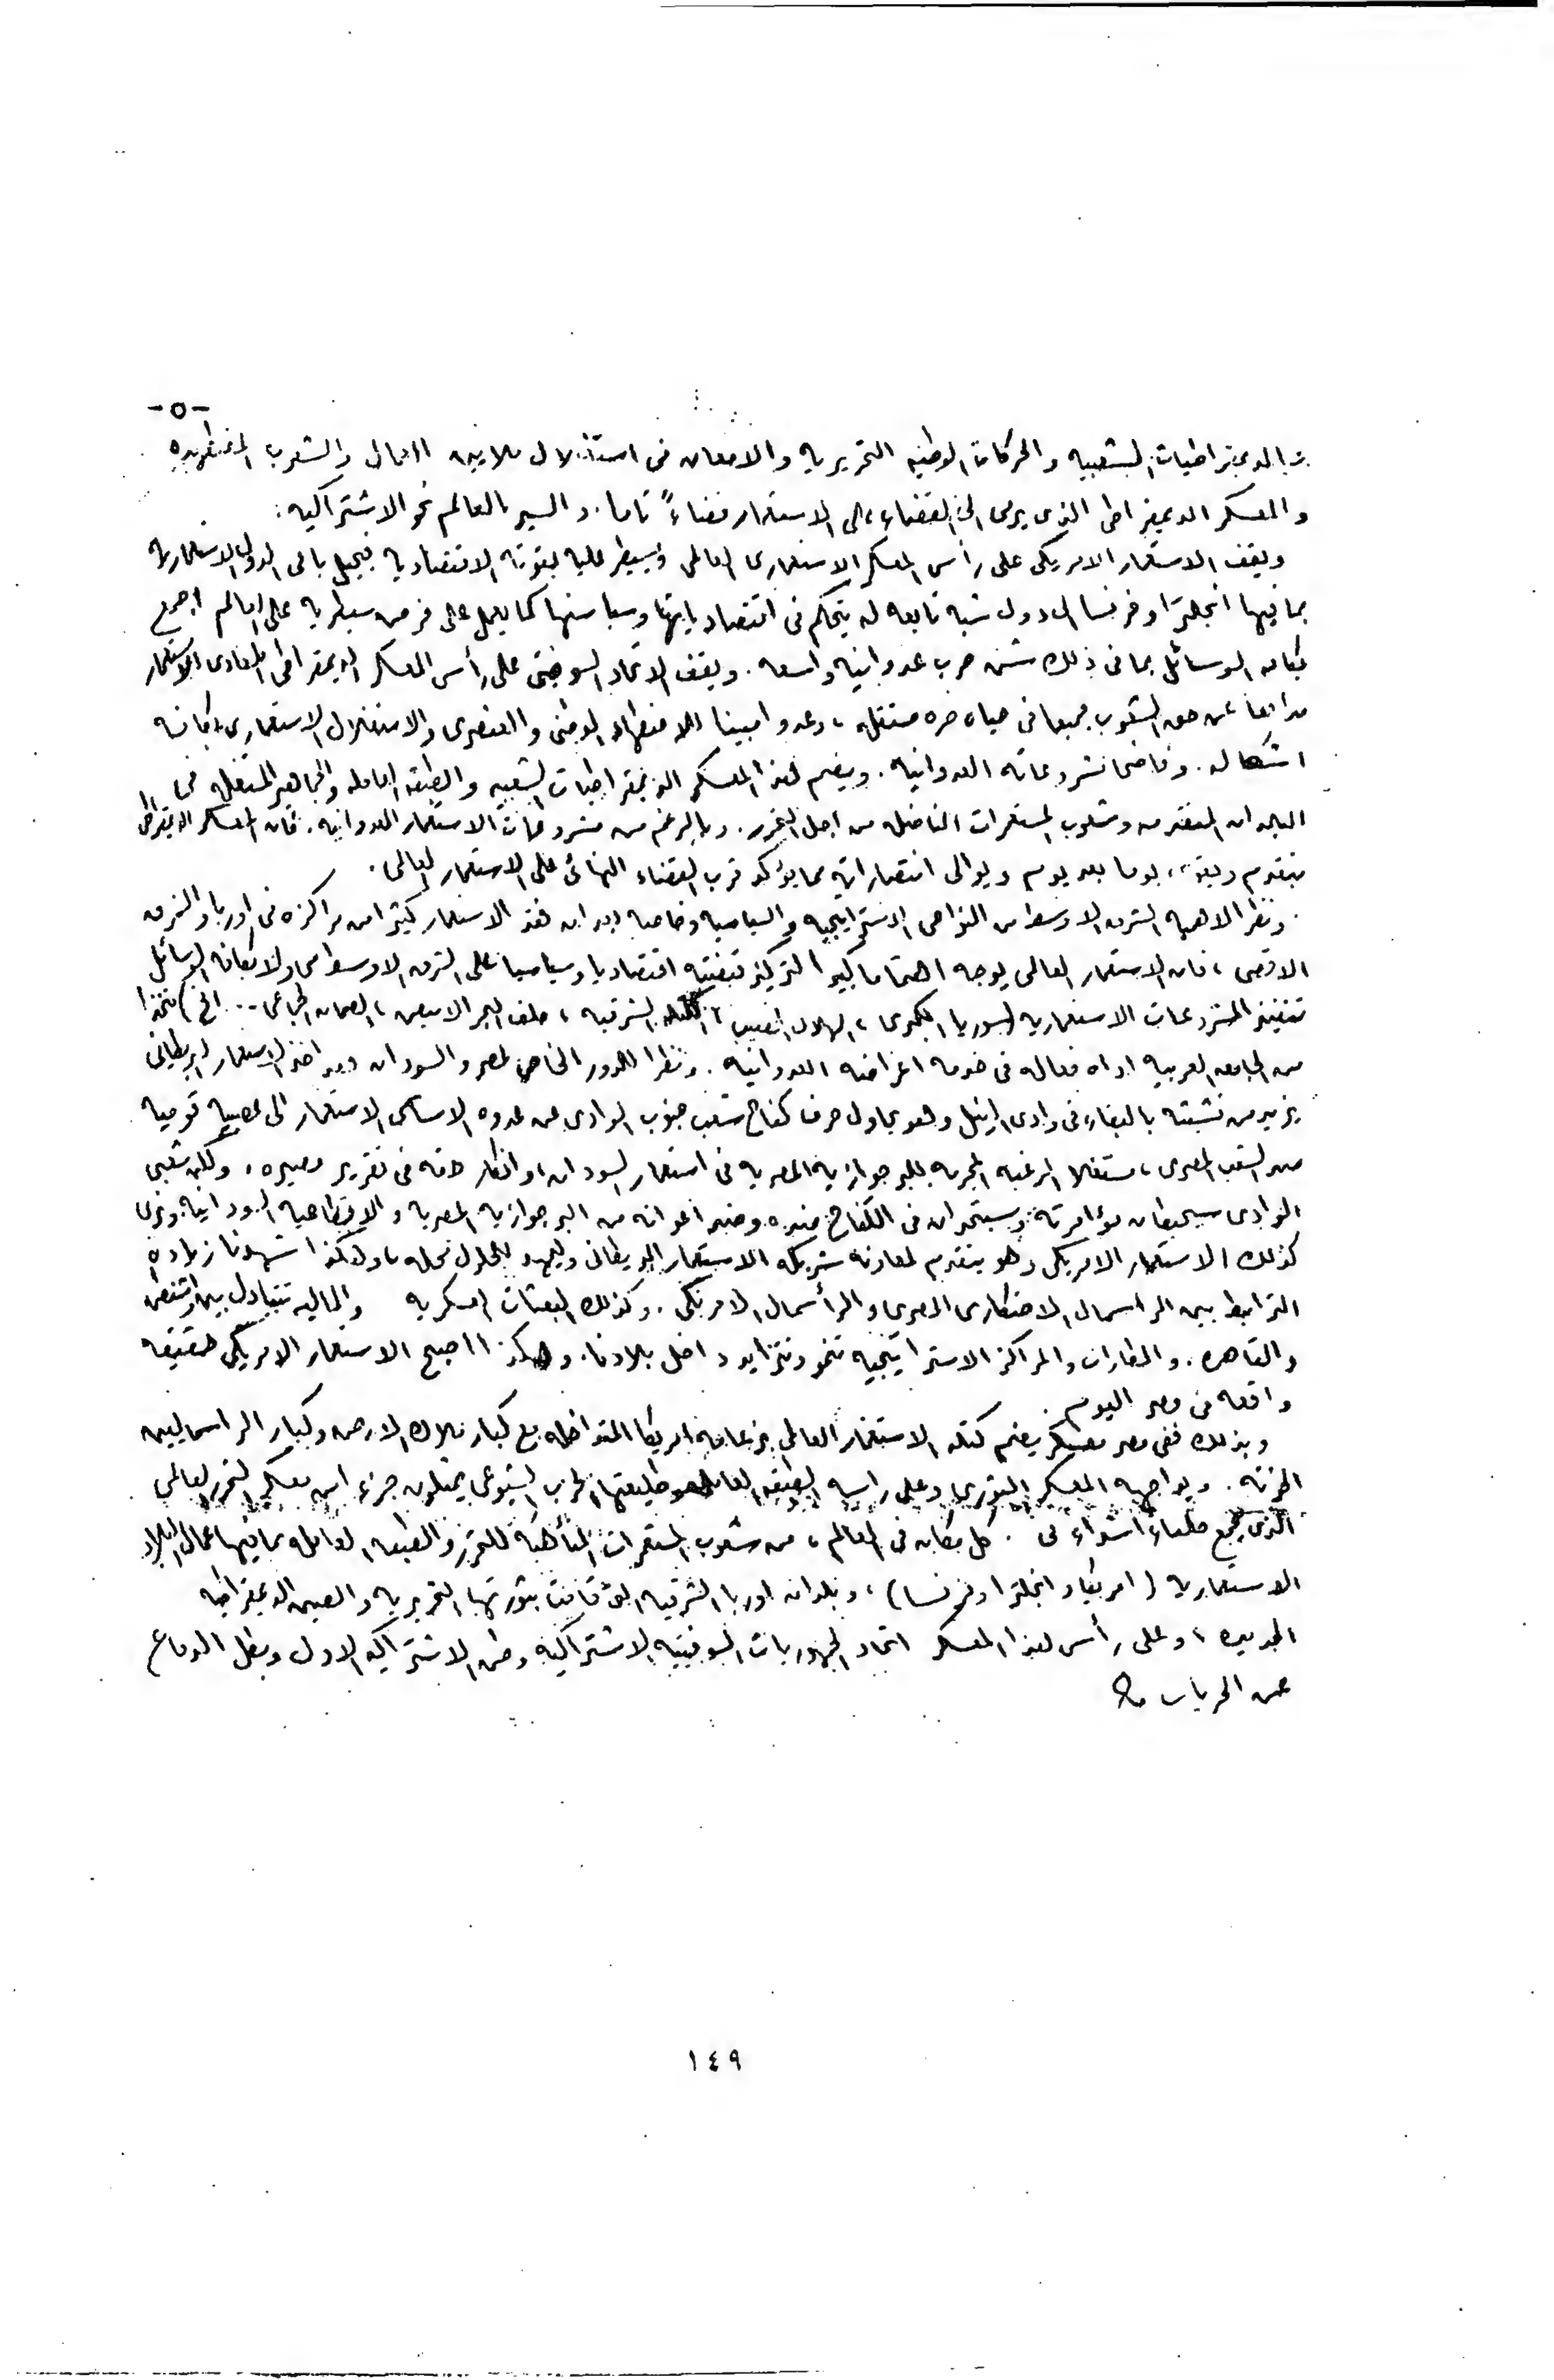 -٥-
والديمقراطيات الشعبيه والحركات الوطنيه التحريريه والامعان فى استغلال ملايين العمال والشعوب المضطهده
والمعسكر الديمقراطى الذى يرمى الى القضاء على الاستعمار قضاءً تاما. والسير بالعالم نحو الاشتراكيه:
ويقف الاستعمار الامريكى على رأس المعسكر الاستعمارى العالمى ويسيطر عليه بقوته الاقتصاديه فيحيل باقى الدول الاستعماريه
بما فيها انجلترا وفرنسا الى دول شبه تابعه له يتحكم فى اقتصادياتها وسياستها كما يعمل على فرض سيطرته على العالم اجمع
بكافه الوسائل بما فى ذلك شن حرب عدوانيه واسعه. ويقف الاتحاد السوفيتى على رأس المعسكر الديمقراطى المعادى للاستعمار
مدافعا عن حق الشعوب جميعا فى حياه حره مستقله، وعدوا مبينا للاضطهاد الوطنى والعنصرى والاستغلال الاستعمارى بكافه
اشكاله. وفاضحا لمشروعاته العدوانيه. ويضم هذا المعسكر الديمقراطيات الشعبيه والطبقه العامله والجماهير المستغله فى
البلدان المتقدمه وشعوب المستعمرات المناضله من اجل التحرر. وبالرغم من مشروعات الاستعمار العدوانيه، فان المعسكر الديمقراطى
يتقدم ويقوى يوما بعد يوم ويوالى انتصاراته مما يؤكد قرب القضاء النهائى على الاستعمار العالمى.
ونظرا لاهميه الشرق الاوسط من النواحى الاستراتيجيه والسياسيه وخاصه بعد ان فقد الاستعمار كثيرا من مراكزه فى اوربا والشرق
الاقصى، فان الاستعمار العالمى يوجه اهتماما كبيرا لتركيز قبضته اقتصاديا وسياسيا على الشرق الاوسط محاولا بكافه الوسائل
تنفيذ المشروعات الاستعماريه (سوريا الكبرى، الهلال الخصيب، الكتله الشرقيه، حلف البحر الابيض، الضمان الجماعى.. الخ) متخذا
من الجامعه العربيه اداه فعاله فى خدمه اغراضه العدوانيه. ونظرا للدور الخاص لمصر والسودان فقد اخذ الاستعمار البريطانى
يزيد من تشبثه بالبقاء فى وادى النيل وهو يحاول صرف كفاح شعب جنوب الوادى عن عدوه الاساسى الاستعمار الى عصبيه قوميه
ضد الشعب المصرى، مستغلا الرغبه المجرمه للبرجوازيه المصريه فى استعمار السودان، وانكار حقه فى تقرير مصيره، ولكن شعبى
الوادى سيحبطان مؤامرته وسيتحدان فى الكفاح ضده وضد اعوانه من البرجوازيه المصريه والاقطاعيه السودانيه ونرى
كذلك الاستعمار الامريكى وهو يتقدم لمعاونه شريكه الاستعمار البريطانى وليمهد للحلول محله، وهكذا شهدنا زياده
الترابط بين الراسمال الاحتكارى المصرى والرأسمال الامريكى. وكذلك البعثات العسكريه والماليه تتبادل بين واشنطن
والقاهره. والمطارات والمراكز الاستراتيجيه تنمو وتتزايد داخل بلادنا. وهكذا اصبح الاستعمار الامريكى حقيقه
واقعه فى مصر اليوم.
وبذلك ففى مصر معسكر يضم كتله الاستعمار العالمى بزعامه امريكا المتواطئه مع كبار ملاك الارض وكبار الراسماليين
الخونه. ويواجهه المعسكر الثورى وعلى راسه الطبقه العامله وطليعتها الحزب الشيوعى يمثلون جزءا من معسكر التحرر العالمى
الذى يجمع حلفاء اشداء فى كل مكان فى العالم، من شعوب المستعمرات المتأهبه للتحرر والطبقه العامله بما فيها عمال البلاد
الاستعماريه (امريكا وانجلترا وفرنسا)، وبلدان اوربا الشرقيه التى قامت بثورتها التحرريه والصين الديمقراطيه
الجديده، وعلى رأس هذا المعسكر اتحاد الجمهوريات السوفيتيه الاشتراكيه وطن الاشتراكيه الاول وبطل الدفاع
عن الحريات
١٤٩